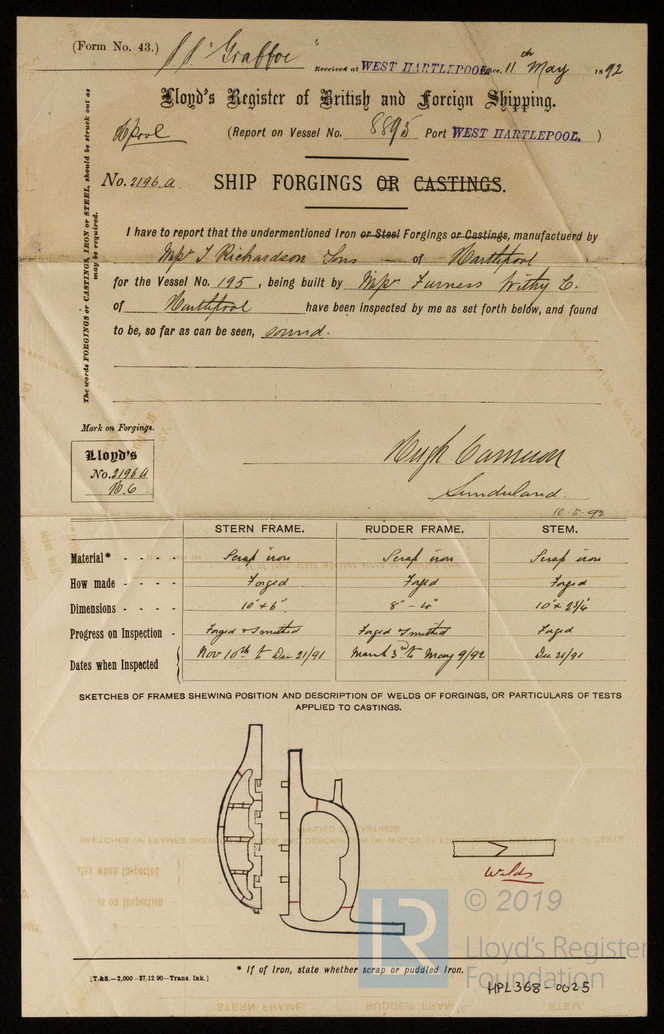 (Form No. 43.) S.S. "Graffoe" Received at WEST HARTLEPOOL 11th May 1892
Lloyd's Register of British and Foreign Shipping.
H'pool (Report on Vessel No. 8895 Port WEST HARTLEPOOL. )
No. 2196.A. SHIP FORGINGS OR CASTINGS.
The words FORGINGS or CASTINGS, IRON or STEEL, should be struck out as
may be required.
I have to report that the undermentioned Iron or Steel Forgings or Castings, manufactuerd by
Messrs T Richardson Sons of Hartlepool
for the Vessel No. 195, being built by Messrs Furness Withy Co.
of Hartlepool have been inspected by me as set forth below, and found
to be, so far as can be seen, sound.
Mark on Forgings.
Lloyd's
No. 2196A
H.C.
Hugh Cameron
Sunderland.
10.5.92
STERN FRAME. RUDDER FRAME. STEM.
Material* - - - - Scrap iron Scrap iron Scrap iron
How made - - - - Forged Forged Forged
Dimensions - - - - 10" x 6" 8" - 4" 10" x 2 3/4"
Progress on Inspection - Forged & Smithed Forged & Smithed Forged
Dates when Inspected Nov 10th to Dec 21/91 March 3rd to May 9/92 Dec 21/91
SKETCHES OF FRAMES SHEWING POSITION AND DESCRIPTION OF WELDS OF FORGINGS, OR PARTICULARS OF TESTS
APPLIED TO CASTINGS.
Welds
© 2019
Lloyd's Register
Foundation
* If of Iron, state whether scrap or puddled Iron.
[T.&S.—2,000—27.12.90—Trans. Ink.]
HPL368-0025